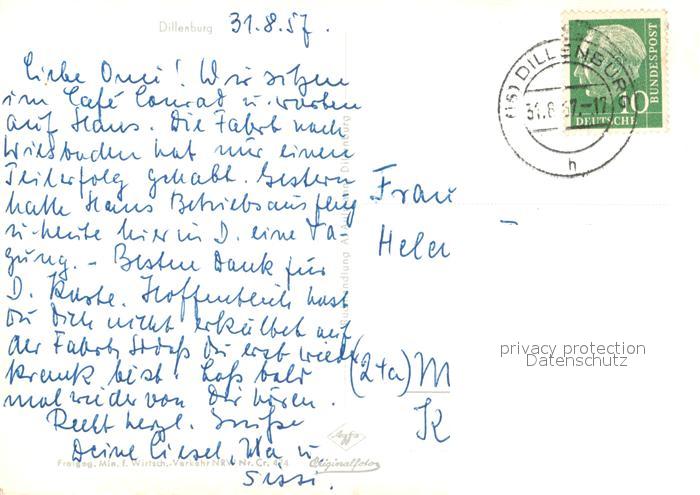 Dillenburg 31.8.57.
Liebe Omi! Wir sitzen
im Café Conrad u. warten
auf Hans. Die Fahrt nach
Wiesbaden hat nur einen
Teilerfolg gehabt. Gestern
hatte Hans Betriebsausflug
u. heute hier in D. eine Ta-
gung. - Besten Dank für
D. Karte. Hoffentlich hast
Du Dich nicht erkältet auf
der Fahrt, sodaß Du erst wieder
krank bist. Laß bald
mal wieder von Dir hören.
Recht herzl. Grüße
Deine Liesel, u
Sissi.
Frau
Helen
(24a) M
K
(16) DILLENBURG
31.8.57.-17
h
DEUTSCHE
BUNDESPOST
10
Agfa
Originalfoto
Freigeg. Min. f. Wirtsch.-Verkehr NRW Nr. Cr. 4/4
privacy protection
Datenschutz